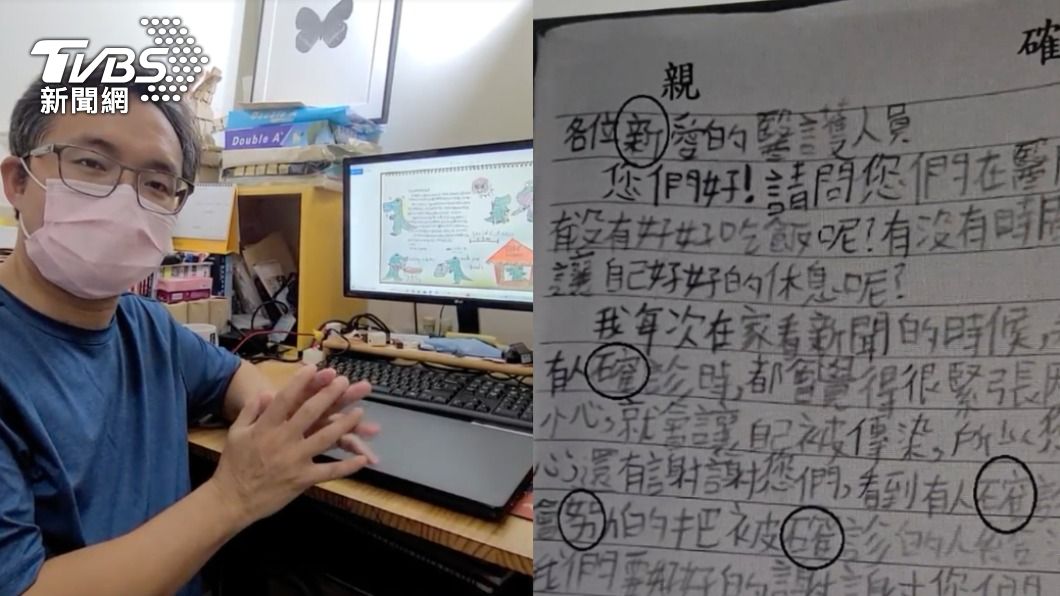 TVBS
新聞網
Double A
確
親
各位新愛的醫護人員
您們好！請問您們在醫
有沒有好好吃飯呢？有沒有時
讓自己好好的休息呢？
我每次在家看新聞的時候，
有人確診時，都會覺得很緊張
小心，就會讓自己被傳染，所以您
心，還有謝謝您們，看到有人確
努力的把被確診的人
們要好好的謝謝您們